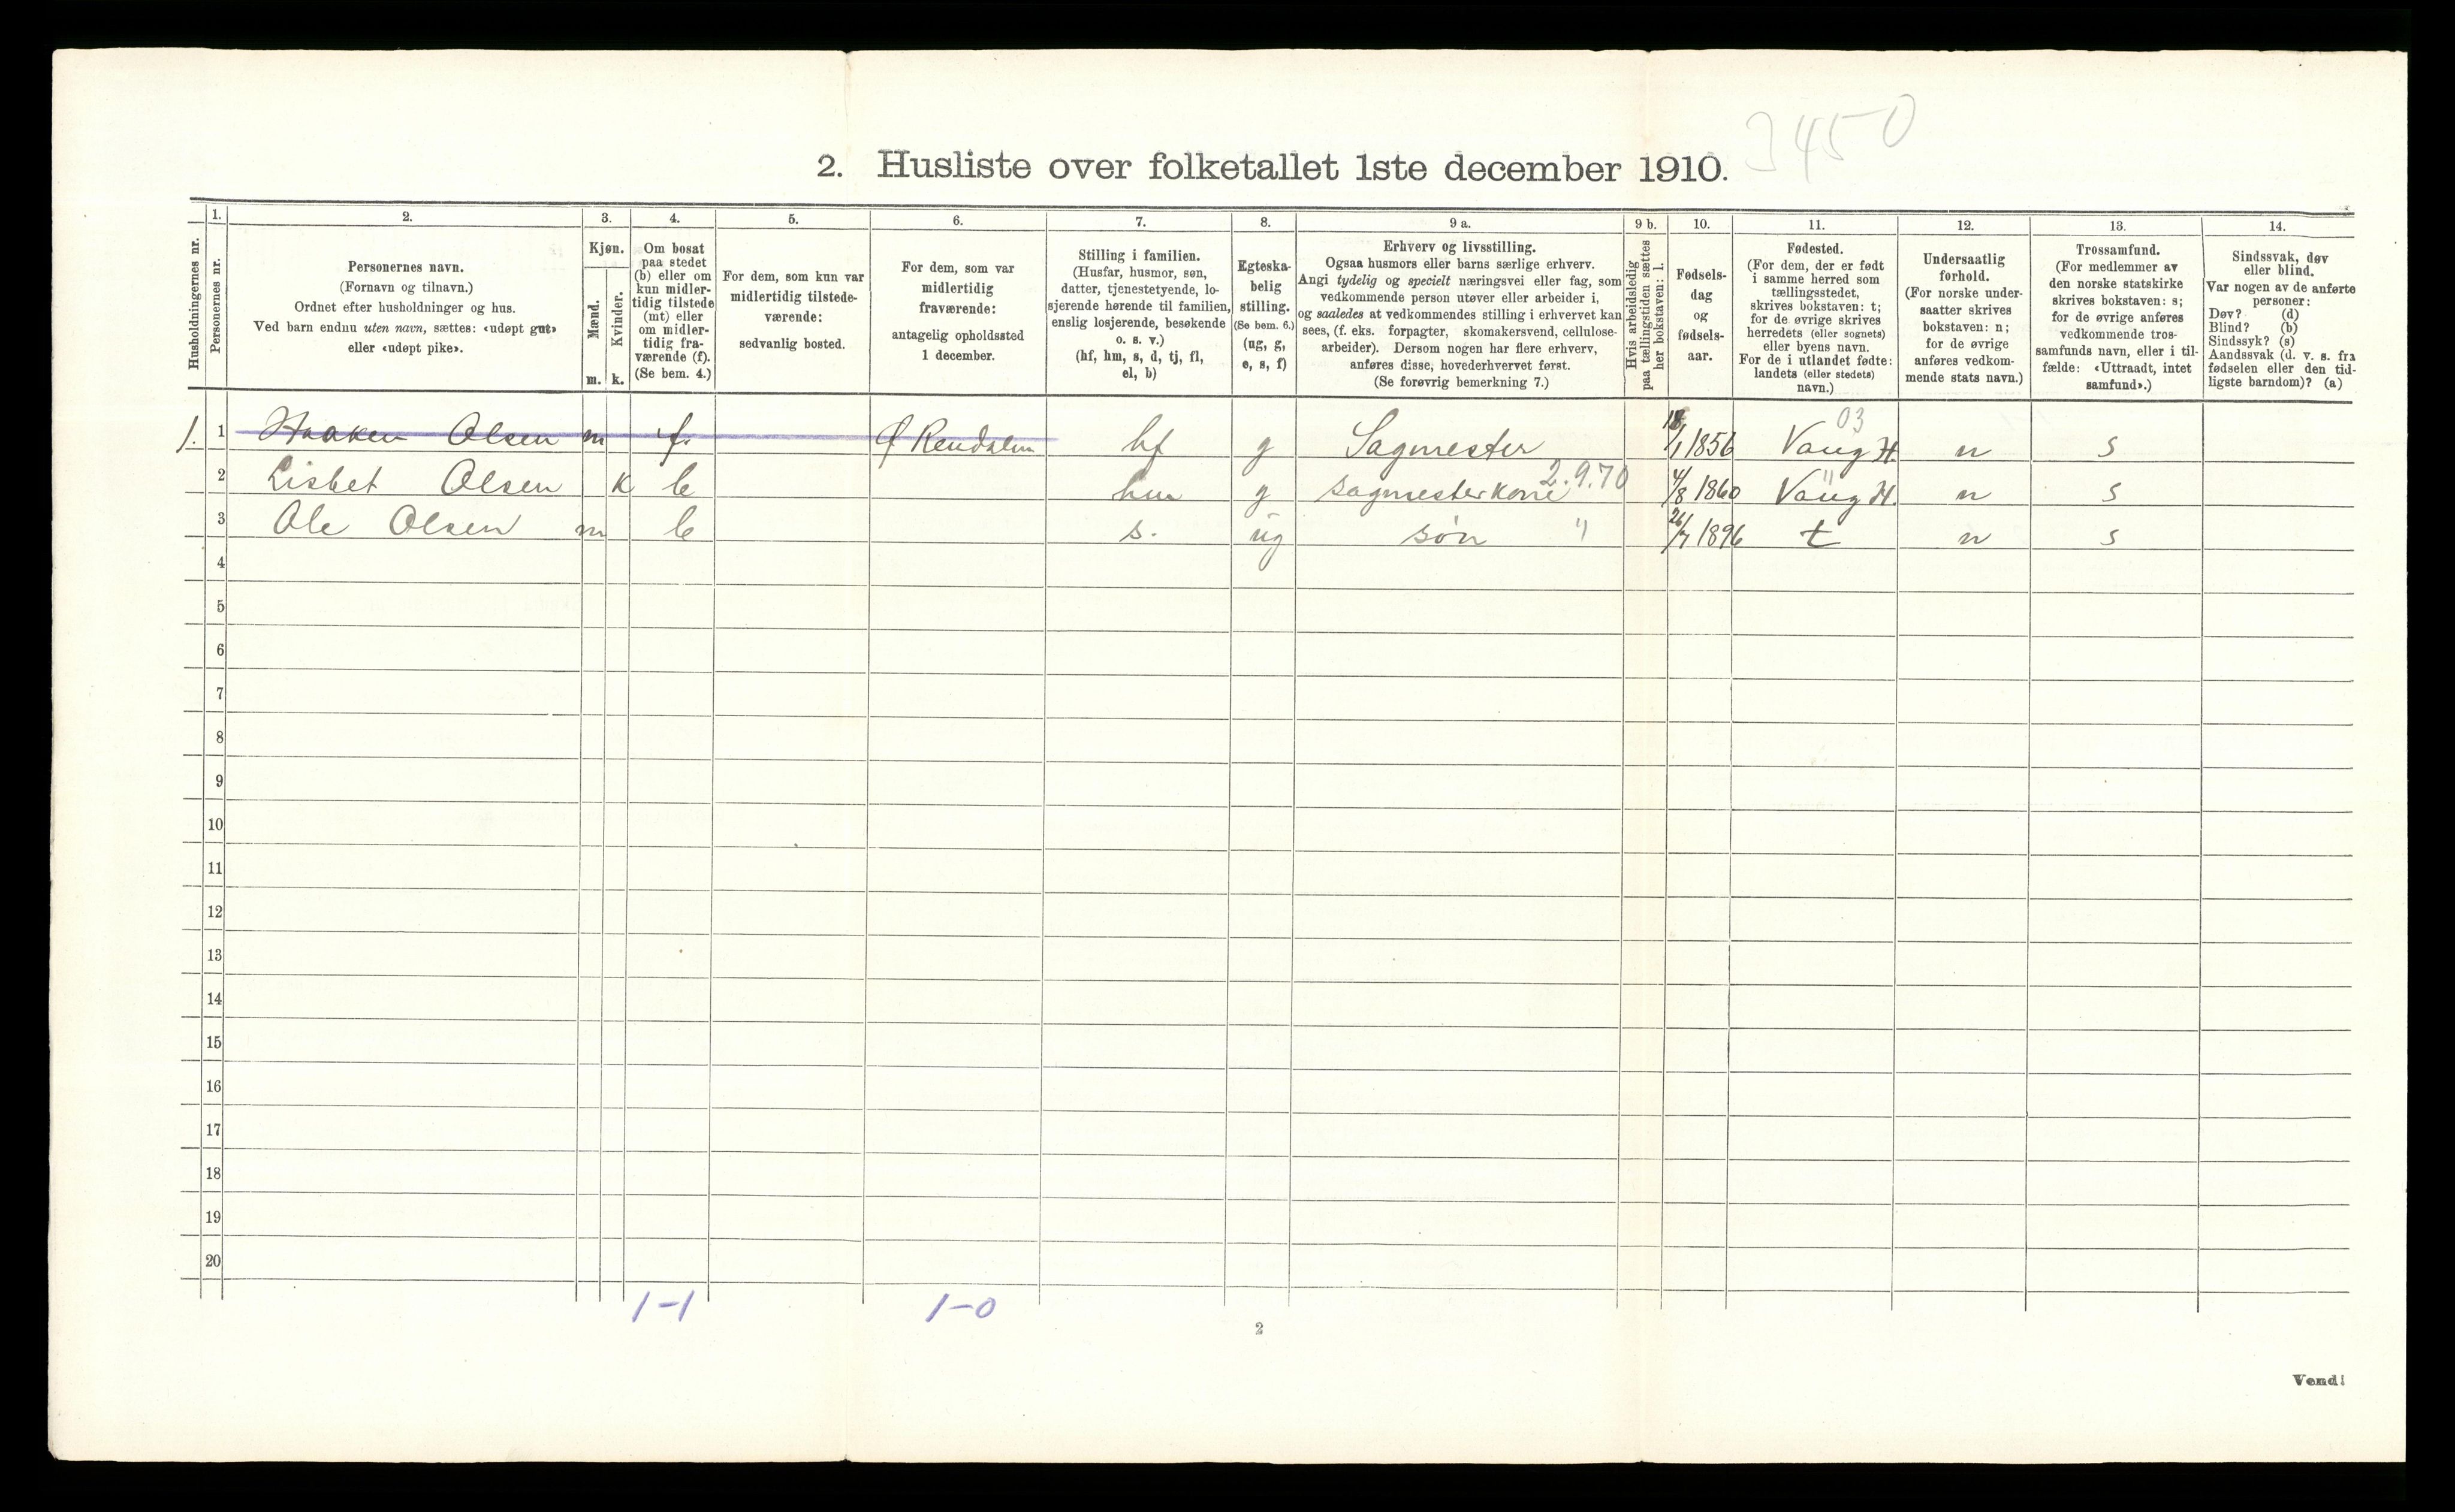 3450
2. Husliste over folketallet 1ste december 1910.
Husholdningernes nr.
1.
Personernes nr.
2.
Personernes navn.
(Fornavn og tilnavn.)
Ordnet efter husholdninger og hus.
Ved barn endnu uten navn, sættes: «udøpt gut»
eller «udøpt pike».
3.
Kjøn.
Mænd.
m.
Kvinder.
k.
4.
Om bosat
paa stedet
(b) eller om
kun midler-
tidig tilstede
(mt) eller
om midler-
tidig fra-
værende (f).
(Se bem. 4.)
5.
For dem, som kun var
midlertidig tilstede-
værende:
sedvanlig bosted.
6.
For dem, som var
midlertidig
fraværende:
antagelig opholdssted
1 december.
7.
Stilling i familien.
(Husfar, husmor, søn,
datter, tjenestetyende, lo-
sjerende hørende til familien,
enslig losjerende, besøkende
o. s. v.)
(hf, hm, s, d, tj, fl,
el, b)
8.
Egteska-
belig
stilling.
(Se bem. 6.)
(ug, g,
e, s, f)
9 a.
Erhverv og livsstilling.
Ogsaa husmors eller barns særlige erhverv.
Angi tydelig og specielt næringsvei eller fag, som
vedkommende person utøver eller arbeider i,
og saaledes at vedkommendes stilling i erhvervet kan
sees, (f. eks. forpagter, skomakersvend, cellulose-
arbeider). Dersom nogen har flere erhverv,
anføres disse, hovederhvervet først.
(Se forøvrig bemerkning 7.)
9 b.
Hvis arbeidsledig
paa tællingstiden sættes
her bokstaven: l.
10.
Fødsels-
dag
og
fødsels-
aar.
11.
Fødested.
(For dem, der er født
i samme herred som
tællingsstedet,
skrives bokstaven: t;
for de øvrige skrives
herredets (eller sognets)
eller byens navn.
For de i utlandet fødte:
landets (eller stedets)
navn.)
12.
Undersaatlig
forhold.
(For norske under-
saatter skrives
bokstaven: n;
for de øvrige
anføres vedkom-
mende stats navn.)
13.
Trossamfund.
(For medlemmer av
den norske statskirke
skrives bokstaven: s;
for de øvrige anføres
vedkommende tros-
samfunds navn, eller i til-
fælde: «Uttraadt, intet
samfund».)
14.
Sindssvak, døv
eller blind.
Var nogen av de anførte
personer:
Døv? (d)
Blind? (b)
Sindssyk? (s)
Aandssvak (d. v. s. fra
fødselen eller den tid-
ligste barndom)? (a)
03
1. 1 Haaken Olsen m f. Ø Rendalen hf g Sagmester 1/1 1856 Vang H. n s
2.9.70 "
2 Lisbet Olsen k b hm g sagmesterkone 4/8 1860 Vang H. n s
3 Ole Olsen m b s. ug søn " 26/7 1896 t n s
4
5
6
7
8
9
10
11
12
13
14
15
16
17
18
19
20
1-1 1-0
2
Vend!